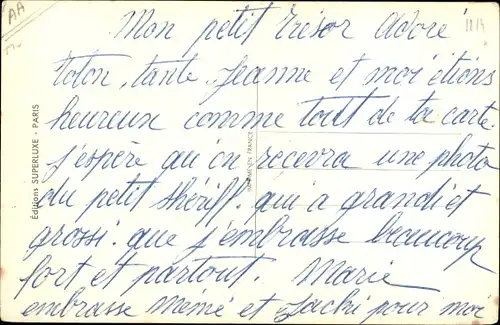 AA
Mon petit trésor adoré
toton, tante Jeanne et moi étions
heureux comme tout de ta carte
j'espère qu'on recevra une photo
du petit shériff. qui a grandi et
grossi. que j'embrasse beaucoup
fort et partout. Marie
embrasse Mémé et Jacki pour moi
Éditions SUPERLUXE - PARIS